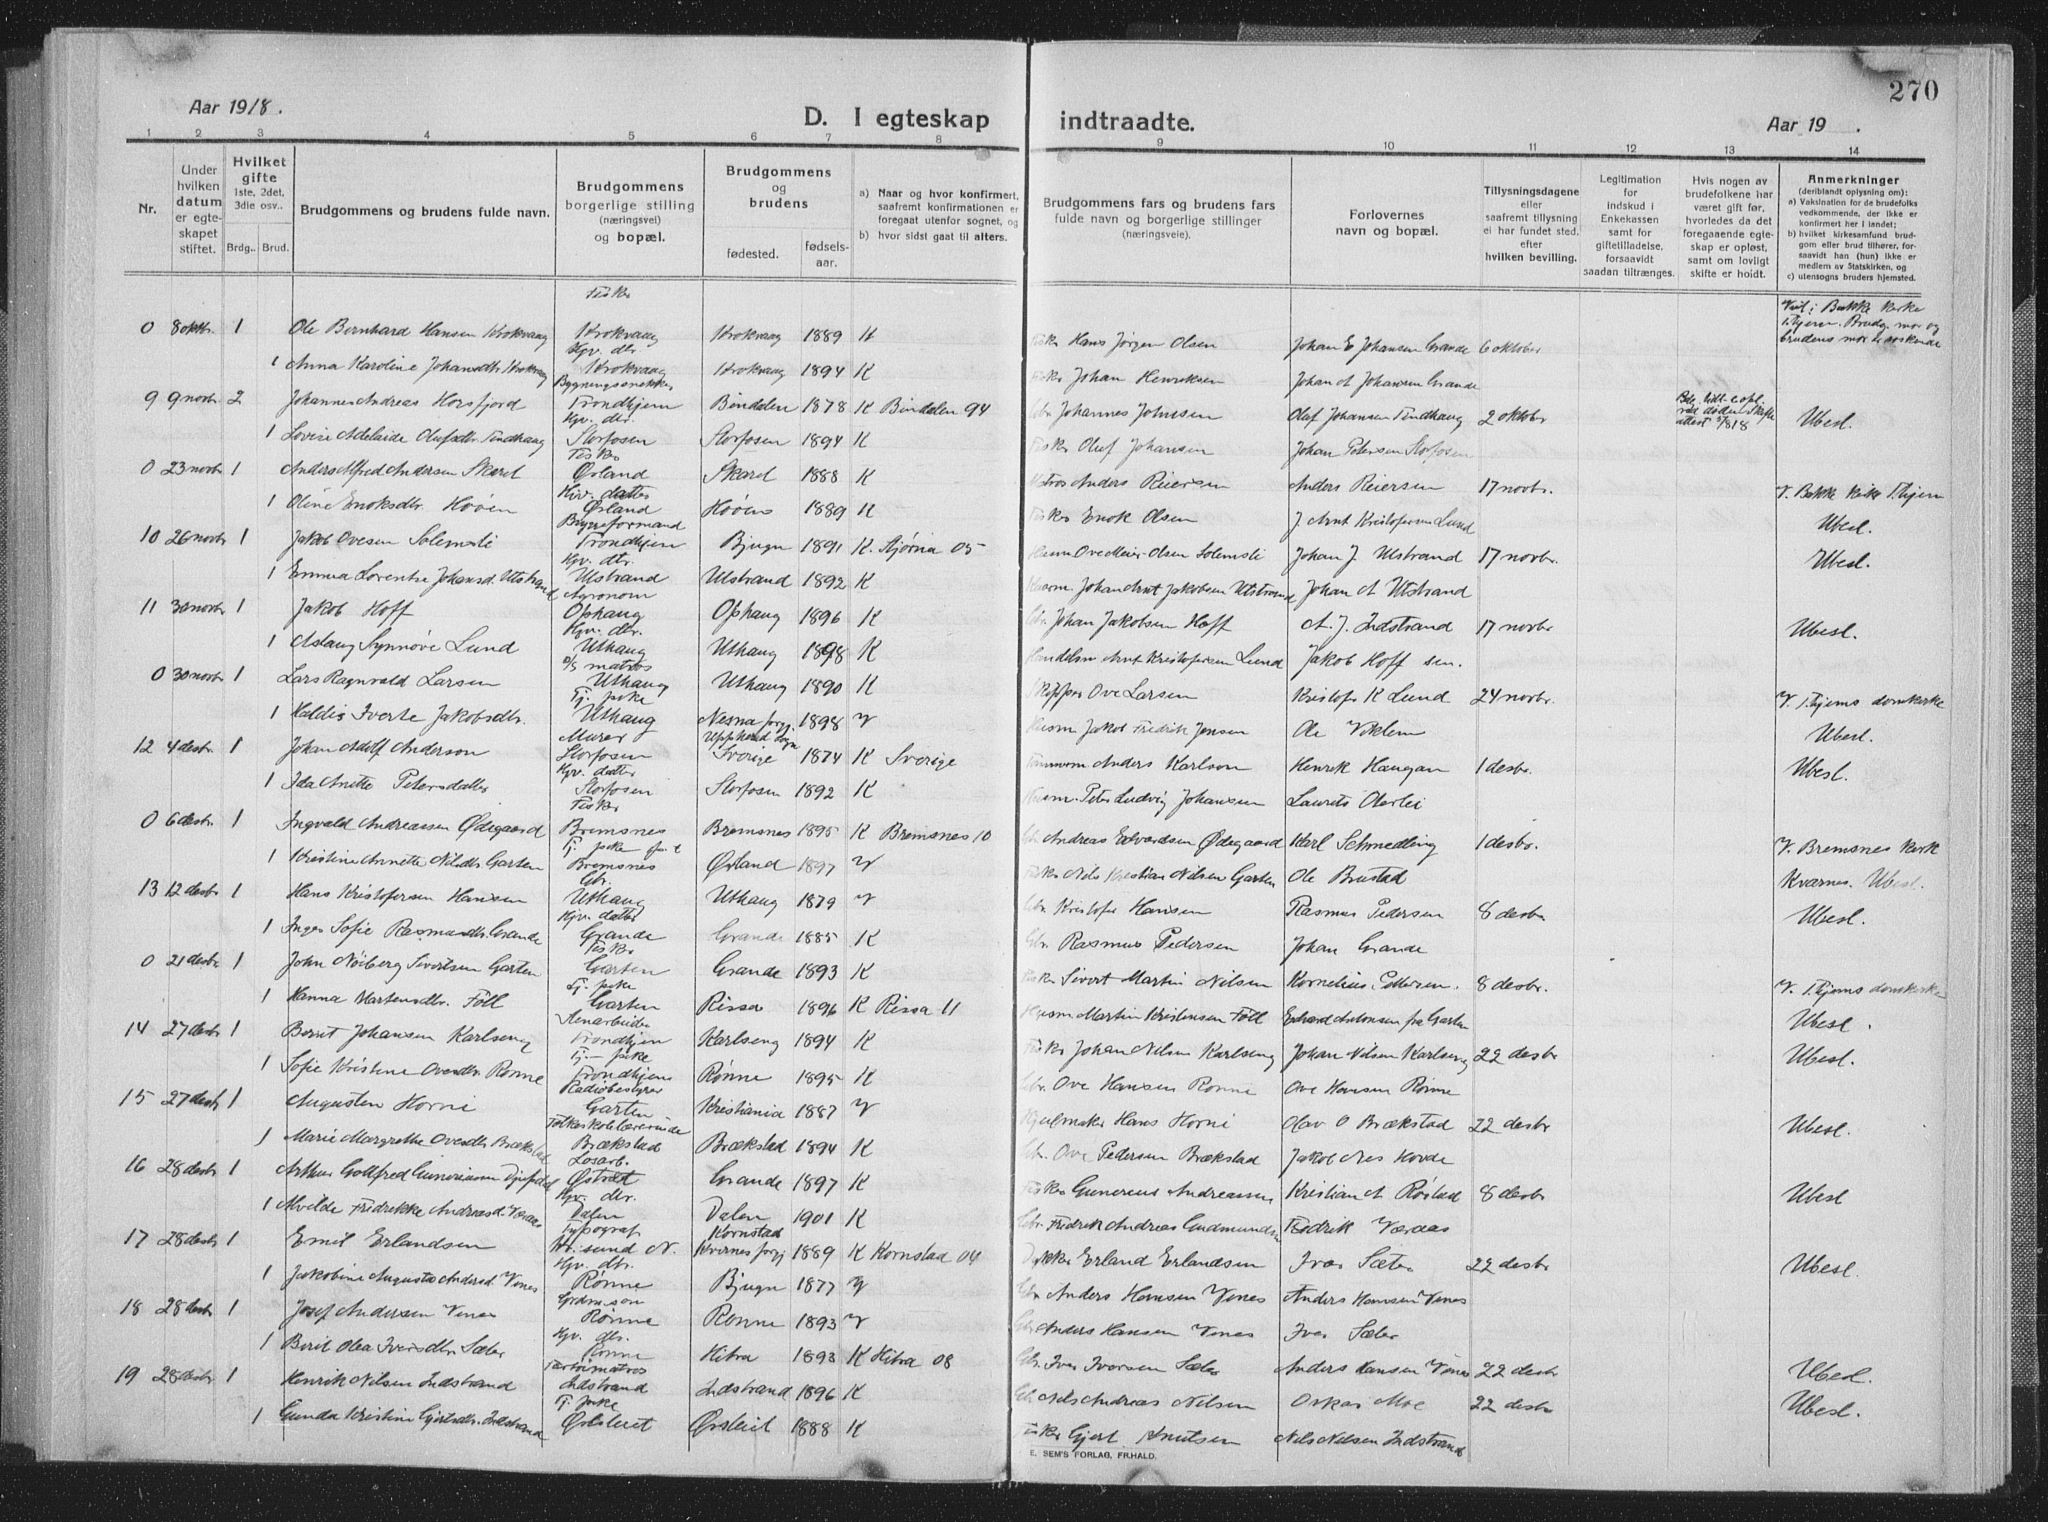 270
Aar 1918.
D. I egteskap indtraadte.
Aar 19 .
1 2 3 4 5 6 7 8 9 10 11 12 13 14
Nr.
Under hvilken datum er egteskapet stiftet.
Hvilket gifte
1ste, 2det, 3die osv..
Brdg.. Brud.
Brudgommens og brudens fulde navn.
Brudgommens borgerlige stilling (næringsvei) og bopæl.
Brudgommens og brudens
fødested. fødselsaar.
a) Naar og hvor konfirmert, saafremt konfirmationen er foregaat utenfor sognet, og
b) hvor sidst gaat til alters.
Brudgommens fars og brudens fars fulde navn og borgerlige stillinger (næringsveie).
Forlovernes navn og bopæl.
Tillysningsdagene eller saafremt tillysning ei har fundet sted, efter hvilken bevilling.
Legitimation for indskud i Enkekassen samt for giftetilladelse, forsaavidt saadan tiltrænges.
Hvis nogen av brudefolkene har været gift før, hvorledes da det foregaaende egteskap er opløst, samt om lovligt skifte er holdt.
Anmerkninger (deriblandt oplysning om):
a) Vaksination for de brudefolks vedkommende, der ikke er konfirmert her i landet;
b) hvilket kirkesamfund brudgom eller brud tilhører, forsaavidt han (hun) ikke er medlem av Statskirken, og
c) utensogns bruders hjemsted.
0 8 oktbr. 1 Ole Bernhard Hansen Krokvaag Fisker Krokvaag Krokvaag 1889 K Hans Jørgen Olsen Johan E Johansen Grande 6 oktober
1 Anna Karoline Johansdtr Krokvaag Hjv. dtr. Krokvaag Krokvaag 1894 K Johan Henriksen Johan A Johansen Grande
9 9 novbr. 2 Johannes Andreas Horsfjord Bygningssnekker Trondhjem Bindalen 1878 K Bindalen 94 Johannes Johnsen Oluf Johansen Tindhaug 2 oktobr Ubesl.
1 Lovise Adelaide Olufsdtr. Tindhaug Hjv. dtr. Storfosen Storfosen 1894 K Oluf Johansen Johan Petersen Storfosen
0 23 novbr 1 Anders Alfred Andersen Skaret Fisker Ørland Skaret 1888 K Anders Reiersen Anders Reiersen 17 novbr. V. Bakke kirke T.hjem
1 Oline Enoksdtr. Høvin Hjv. datter Ørland Høvin 1889 K Enok Olsen J. Arnt Kristofersen Lund Ubesl.
10 26 novbr 1 Jakob Ovesen Solemsli Byggeformand Trondhjem Bjugn 1891 K. Stjørna 05 Ove Meier Olsen Solemsli Johan J. Ulstrand 17 novbr. Ubesl.
1 Emma Lorentse Johansd. Utstrand Hjv. dtr. Ulstrand Ulstrand 1892 K Johan Arnt Jakobsen Utstrand Johan A Utstrand
11 30 novbr 1 Jakob Hoff Agronom Ophaug Ophaug 1896 K Johan Jakobsen Hoff A. J. Indstrand 17 novbr Ubesl.
1 Aslaug Synnøve Lund Hjv. dtr. Uthaug Uthaug 1898 K Arnt Kristofersen Lund Jakob Hoff sen.
0 30 novbr 1 Lars Ragnvald Larsen matros Uthaug Uthaug 1890 K Ove Larsen Kristofer K Lund 24 novbr. V. T.hjems domkirke
1 Haldis Iverte Jakobsdtr. Tj. pike Uthaug Nesna 1898 V Jakob Fredrik Jensen Ole Viklem Ubesl.
12 4 desbr. 1 Johan Adolf Anderson Murer Storfosen Sverige 1874 K Sverige Anders Karlson Henrik Haugan 1 desbr. Ubesl.
1 Ida Anette Petersdatter Hjv. datter Storfosen Storfosen 1892 K Peter Ludvig Johansen Laurits Oterlei
0 6 desbr. 1 Ingvald Andreassen Ødegaard Fisker Bremsnes Bremsnes 1895 K Bremsnes 10 Andreas Edvardsen Ødegaard Karl Schmedling 1 desbr. V. Bremsnes kirk
1 Kristine Annette Nilsdtr. Garten Tj. pike Bremsnes Ørland 1897 V Nils Kristian Nilsen Garten Ole Brustad Kvernes. Ubesl.
13 12 desbr 1 Hans Kristofersen Hansen Gbr. Uthaug Uthaug 1879 V Kristofer Hansen Rasmus Pedersen 8 desbr Ubesl.
1 Inger Sofie Rasmusdtr. Grande Hjv. datter Grande Grande 1885 K Rasmus Pedersen Johan Grande
0 21 desbr 1 John Nøiberg Sivertsen Garten Fisker Garten Grande 1893 K Sivert Martin Nilsen Kornelius Pettersen. 8 desbr. V. T.hjems domkirke
1 Hanna Martensdtr. Föll Tj. pike Garten Rissa 1896 K Rissa 11 Martin Kristensen Föll Edvard Antonsen fra Garten Ubesl.
14 27 desbr 1 Bernt Johansen Karlseng Trondhjem Karlseng 1894 K Johan Nilsen Karlseng Johan Nilsen Karlseng 22 desbr Ubesl.
1 Sofie Kristine Ovesdtr. Rønne Tj. pike Trondhjem Rønne 1895 K Ove Hansen Rønne Ove Hansen Rønne
15 27 desbr 1 Augusten Horni Radiobestyrer Garten Kristiania 1887 V Hans Horni Olav O Brækstad 22 desbr Ubesl.
1 Marie Margrethe Ovesdtr. Brækstad Folkeskolelærerinde Brækstad Brækstad 1894 K Ove Pedersen Brækstad Jakob Nes Hovde
16 28 desbr 1 Arthur Gottfred Gunneriussen Losarb. Østraat Grande 1897 K Gunerius Andreassen Kristian A Røstad 8 desbr Ubesl
1 Alvilde Fredrikke Andreasd.Væraas Hjv. dtr. Dalen Dalen 1901 K Fredrik Andreas Gudmundsen Fredrik Væraas
17 28 desbr 1 Emil Erlandsen Typograf Kr.sund N. Kornstad Kvernes 1889 K Kornstad 04 Erland Erlandsen Iver Sæter 22 desbr Ubesl.
1 Jakobine Augusta Andersd. Venes Hjv. dtr. Rønne Bjugn 1877 V Anders Hansen Venes Anders Hansen Venes
18 28 desbr 1 Josef Andersen Venes Grdm. søn Rønne Rønne 1893 V Anders Hansen Venes Iver Sæter
1 Berit Olea Iversdtr. Sæter Hjv. dtr. Rønne Hitra 1893 K Hitra 08 Iver Iversen Sæter Anders Hansen Venes 22 desbr Ubesl.
19 28 desbr 1 Henrik Nilsen Indstrand Indstrand Indstrand 1896 K Nils Andreas Nilsen Oskar Moe 22 desbr Ubesl.
1 Gunda Kristine Gjertsdtr. Indstrand Tj. pike Ørsleiet Ørsleiet 1888 K Gjert Knutsen Nils Nilsen Indstrand
E. SEM'S FORLAG, FR.HALD.